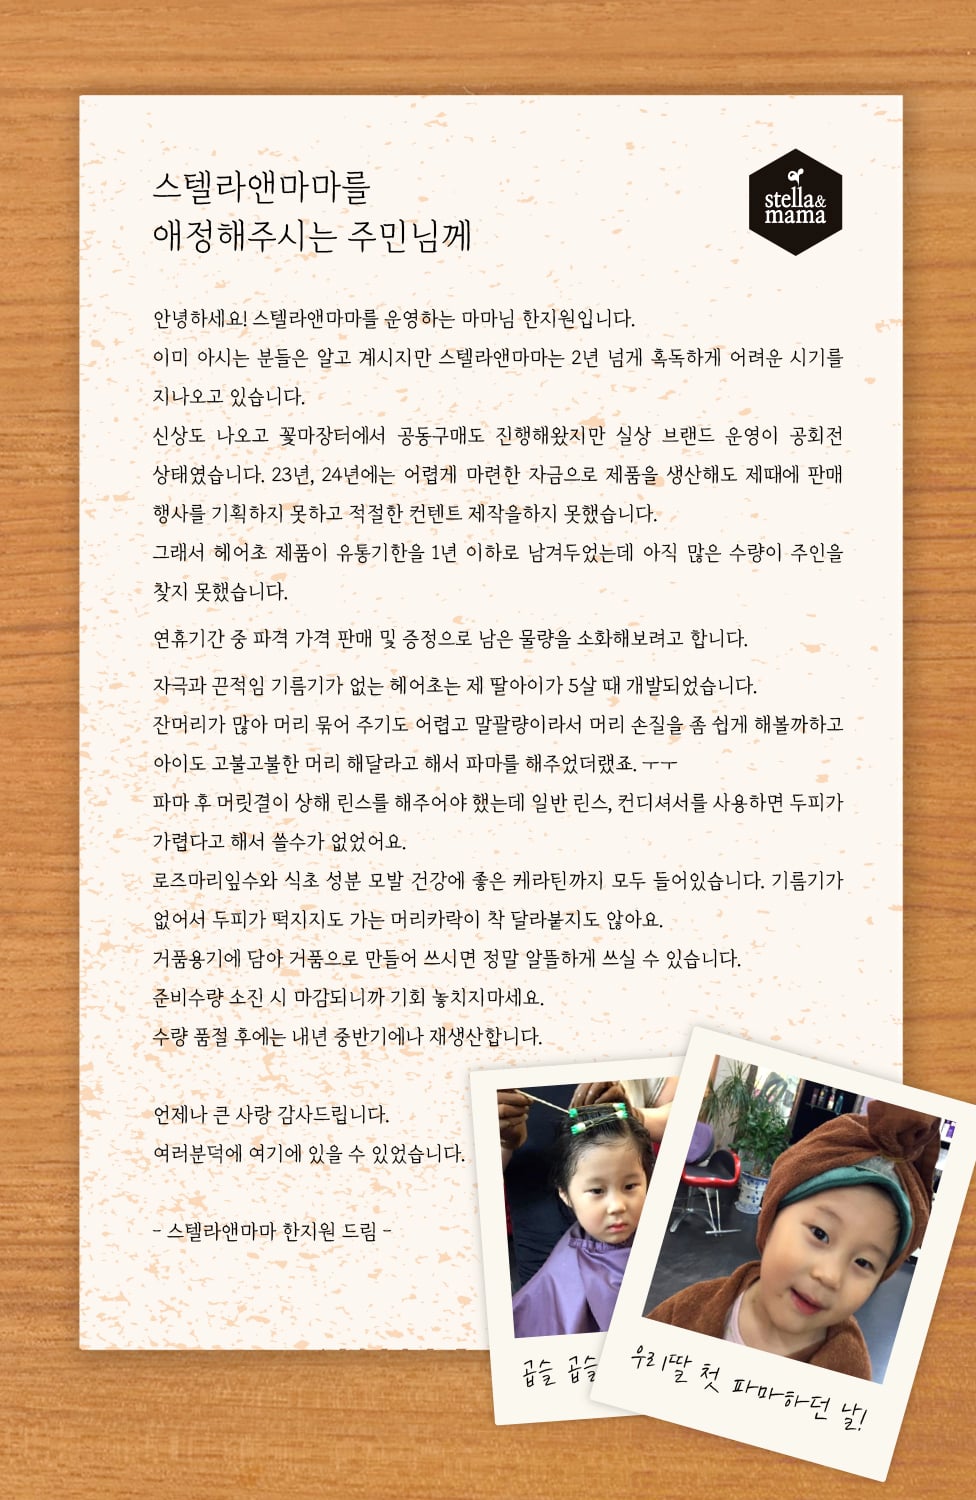 스텔라앤마마를
애정해주시는 주민님께
stella&
mama
안녕하세요! 스텔라앤마마를 운영하는 마마님 한지원입니다.
이미 아시는 분들은 알고 계시지만 스텔라앤마마는 2년 넘게 혹독하게 어려운 시기를
지나오고 있습니다.
신상도 나오고 꽃마장터에서 공동구매도 진행해왔지만 실상 브랜드 운영이 공회전
상태였습니다. 23년, 24년에는 어렵게 마련한 자금으로 제품을 생산해도 제때에 판매
행사를 기획하지 못하고 적절한 컨텐트 제작을하지 못했습니다.
그래서 헤어초 제품이 유통기한을 1년 이하로 남겨두었는데 아직 많은 수량이 주인을
찾지 못했습니다.
연휴기간 중 파격 가격 판매 및 증정으로 남은 물량을 소화해보려고 합니다.
자극과 끈적임 기름기가 없는 헤어초는 제 딸아이가 5살 때 개발되었습니다.
잔머리가 많아 머리 묶어 주기도 어렵고 말괄량이라서 머리 손질을 좀 쉽게 해볼까하고
아이도 고불고불한 머리 해달라고 해서 파마를 해주었더랬죠. ㅜㅜ
파마 후 머릿결이 상해 린스를 해주어야 했는데 일반 린스, 컨디셔서를 사용하면 두피가
가렵다고 해서 쓸수가 없었어요.
로즈마리잎수와 식초 성분 모발 건강에 좋은 케라틴까지 모두 들어있습니다. 기름기가
없어서 두피가 떡지지도 가는 머리카락이 착 달라붙지도 않아요.
거품용기에 담아 거품으로 만들어 쓰시면 정말 알뜰하게 쓰실 수 있습니다.
준비수량 소진 시 마감되니까 기회 놓치지마세요.
수량 품절 후에는 내년 중반기에나 재생산합니다.
언제나 큰 사랑 감사드립니다.
여러분덕에 여기에 있을 수 있었습니다.
- 스텔라앤마마 한지원 드림 -
곱슬 곱슬
우리딸 첫 파마하던 날!